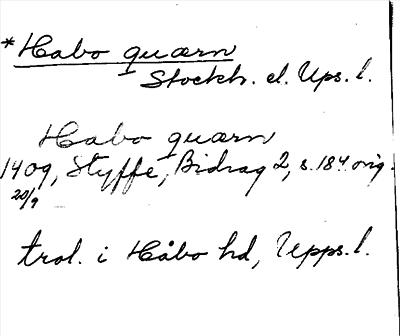 *Habo quærn
Stockh. el. Ups. l.
Habo quærn
1409, Styffe, Bidrag 2, s. 184 orig.
20/9
trol. i Håbo hd, Upps. l.